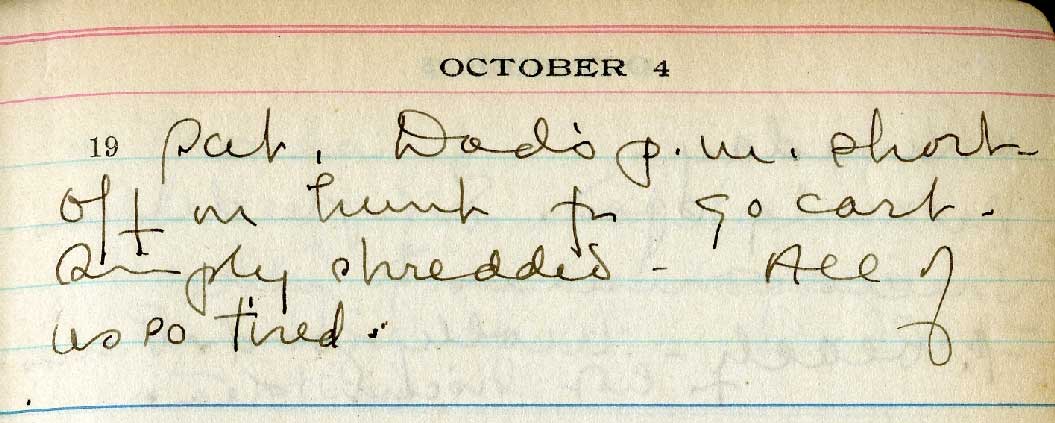 OCTOBER 4
19 Sat. Dad's p.m. short -
Off on hunt for go cart.
Simply shredded - All of
us so tired.